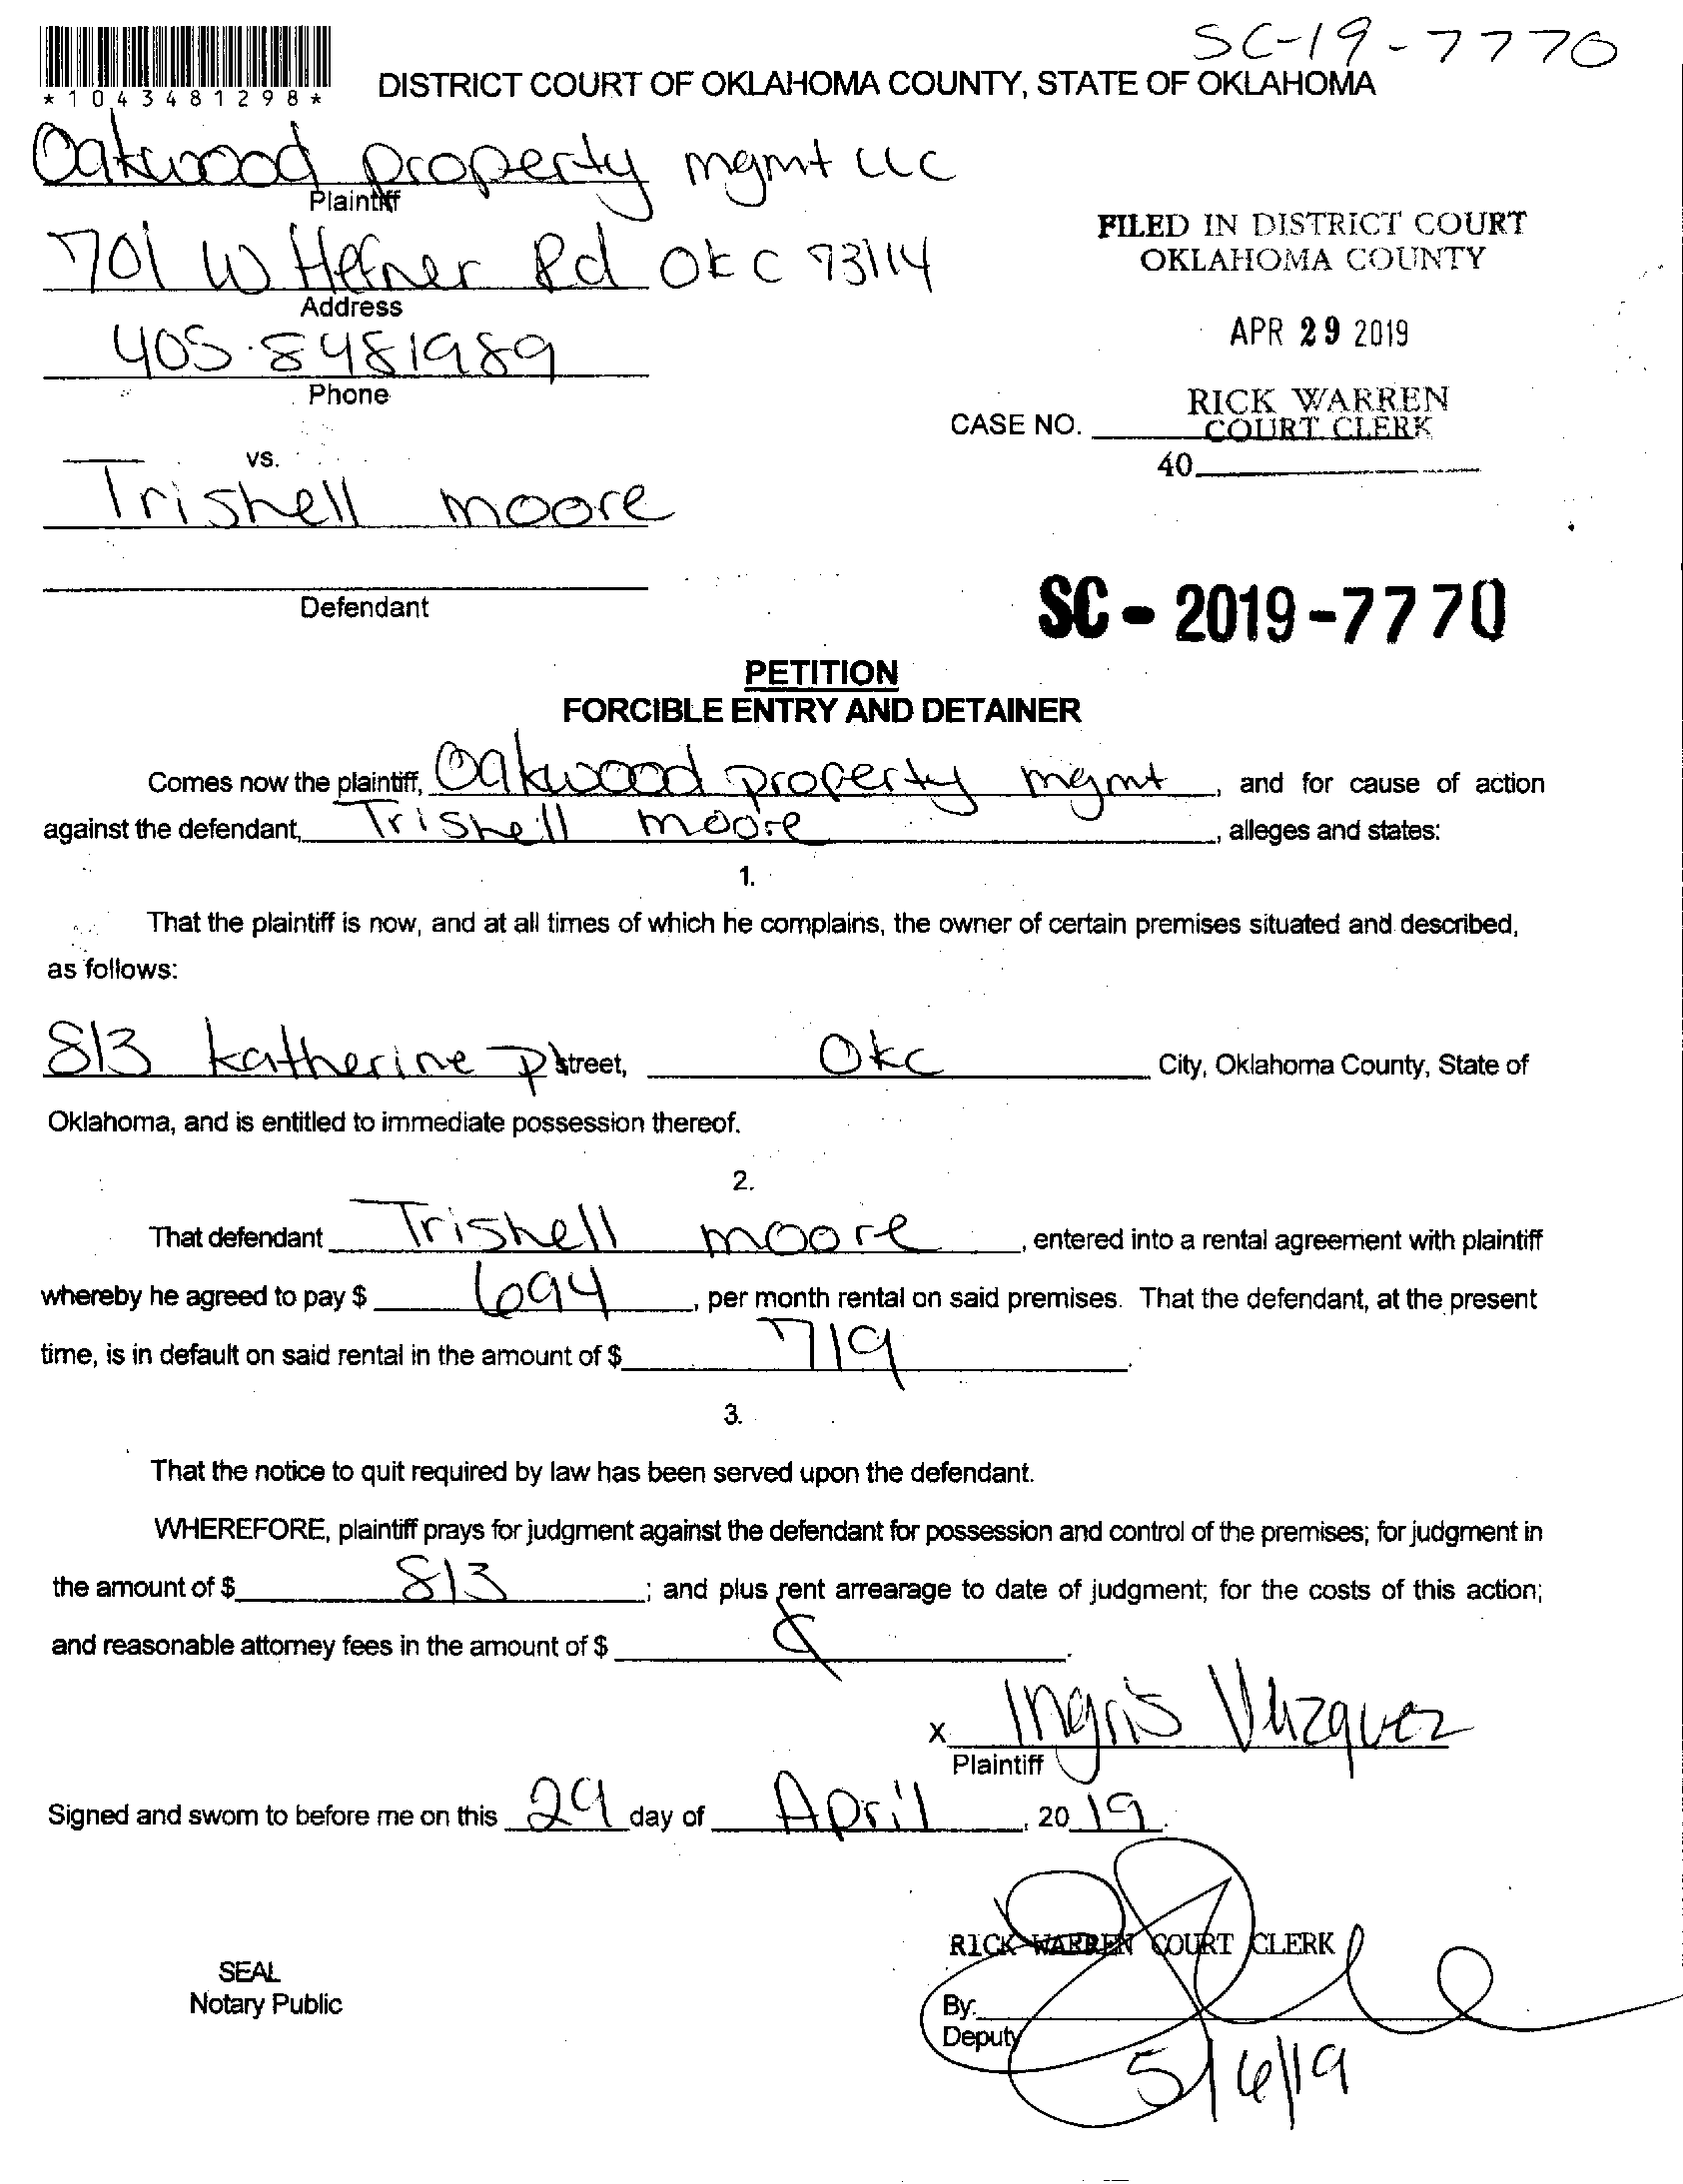 SC-19-7770
*1043481298*
DISTRICT COURT OF OKLAHOMA COUNTY, STATE OF OKLAHOMA
Oakwood property mgmt LLC
Plaintiff
701 W Hefner Rd OKC 73114
Address
405.8481989
Phone
FILED IN DISTRICT COURT
OKLAHOMA COUNTY
APR 29 2019
RICK WARREN
COURT CLERK
CASE NO.
40
vs.
Trishell moore
Defendant
SC - 2019-7770
PETITION
FORCIBLE ENTRY AND DETAINER
Comes now the plaintiff, Oakwood property mgmt, and for cause of action
against the defendant, Trishell moore, alleges and states:
1.
That the plaintiff is now, and at all times of which he complains, the owner of certain premises situated and described,
as follows:
813 Katherine Pl Street, OKC City, Oklahoma County, State of
Oklahoma, and is entitled to immediate possession thereof.
2.
That defendant Trishell moore, entered into a rental agreement with plaintiff
whereby he agreed to pay $ 694, per month rental on said premises. That the defendant, at the present
time, is in default on said rental in the amount of $ 719.
3.
That the notice to quit required by law has been served upon the defendant.
WHEREFORE, plaintiff prays for judgment against the defendant for possession and control of the premises; for judgment in
the amount of $ 813; and plus rent arrearage to date of judgment; for the costs of this action;
and reasonable attorney fees in the amount of $
X Ingris Vazquez
Plaintiff
Signed and sworn to before me on this 29 day of April, 2019.
RICK WARREN COURT CLERK
SEAL
Notary Public
By:
Deputy
5/6/19